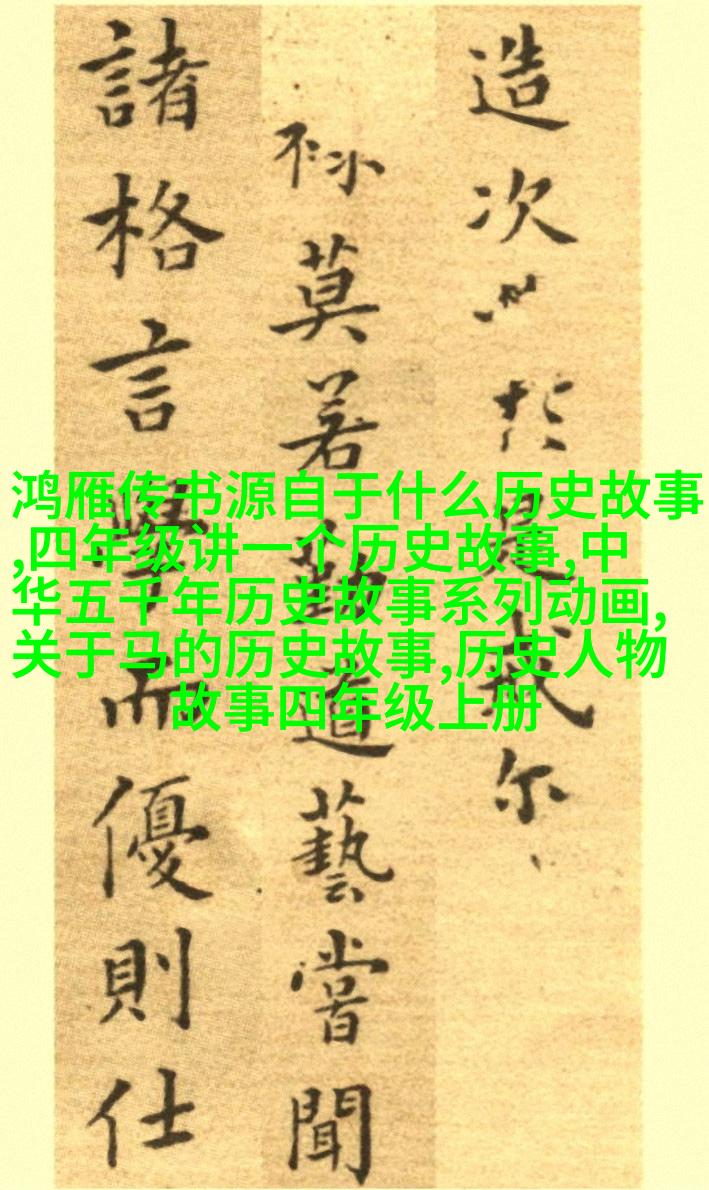 鸿雁传书源自于什么历史故事
,四年级讲一个历史故事,中
华五千年历史故事系列动画,
关于马的历史故事,历史人物
故事四年级上册
造次於是式尔
莫若勤道藝嘗聞
諸格言學而優則仕